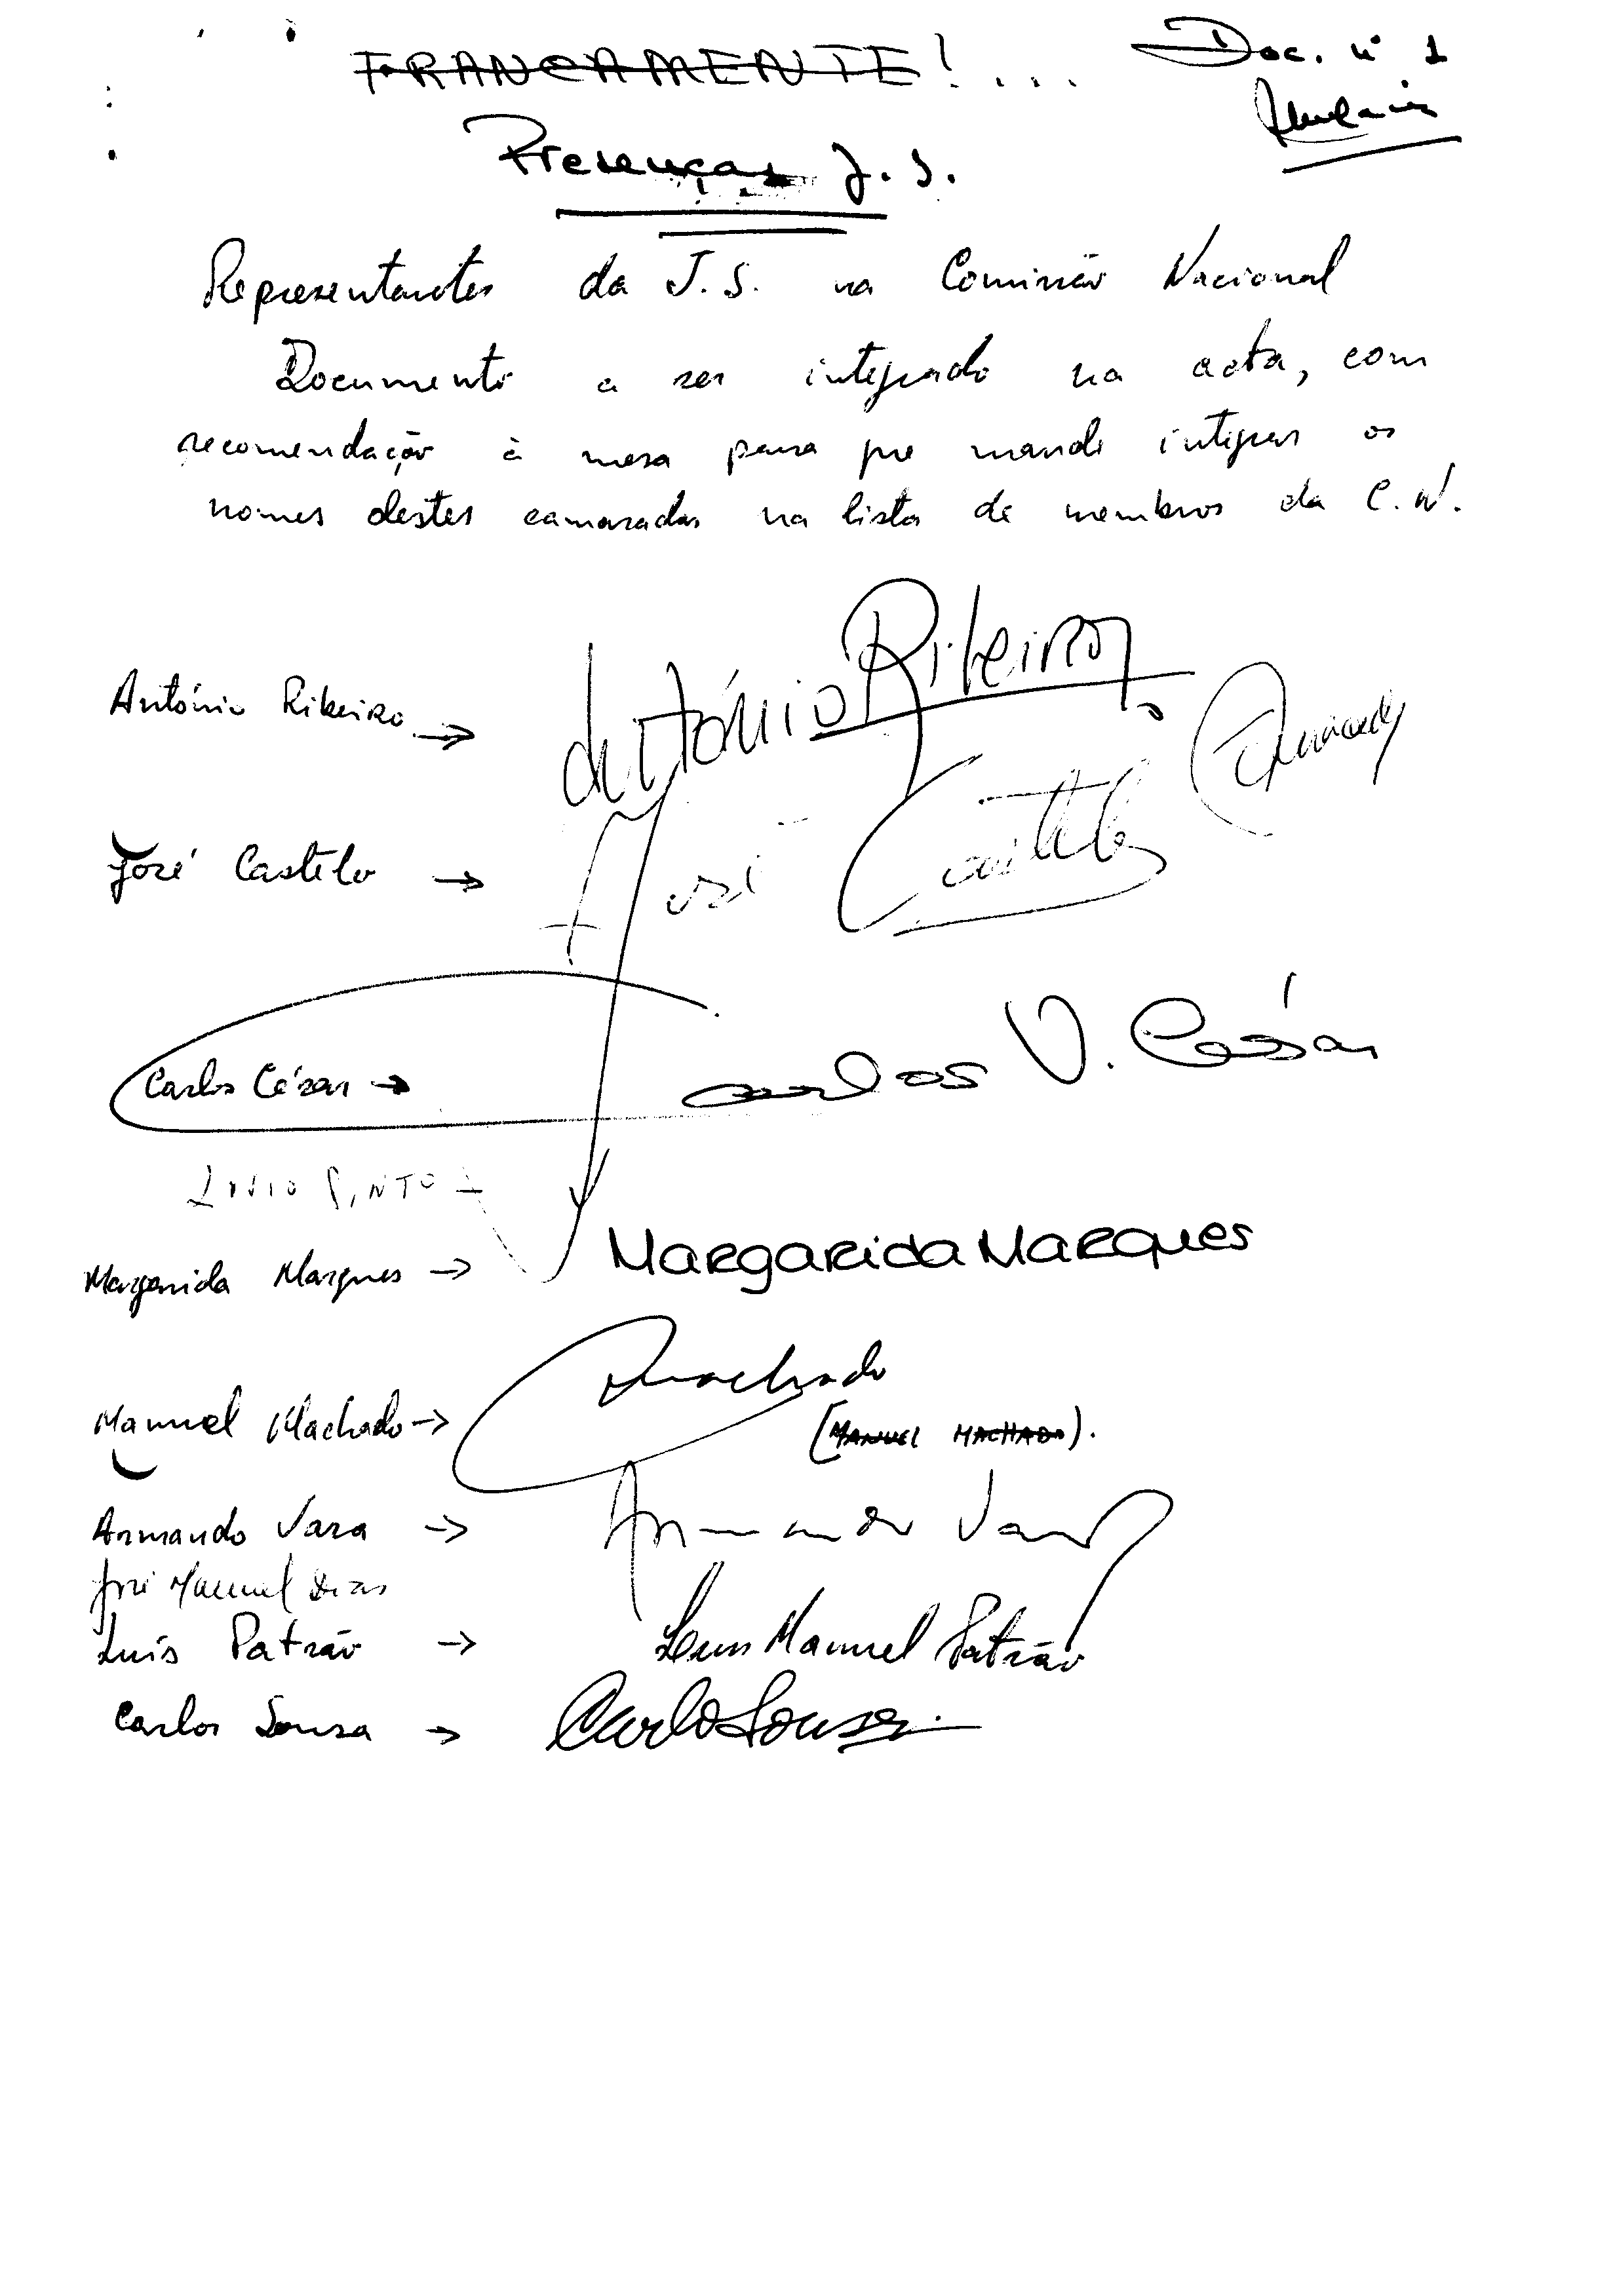 FRANCAMENTE!...
Doc. nº 1
Presenças J.S.
Representantes da J.S. na Comissão Nacional
Documento a ser integrado na acta, com
recomendação à mesa para que mande integrar os
nomes destes camaradas na lista de membros da C.N.
António Ribeiro → António Ribeiro
José Castelo → José Castelo
Carlos César → Carlos V. César
PINTO
Margarida Marques → Margarida Marques
Manuel Machado → Machado
(MANUEL MACHADO).
Armando Vara → Armando Vara
José Manuel Dias
Luís Patrão → Luis Manuel Patrão
Carlos Sousa → Carlos Sousa